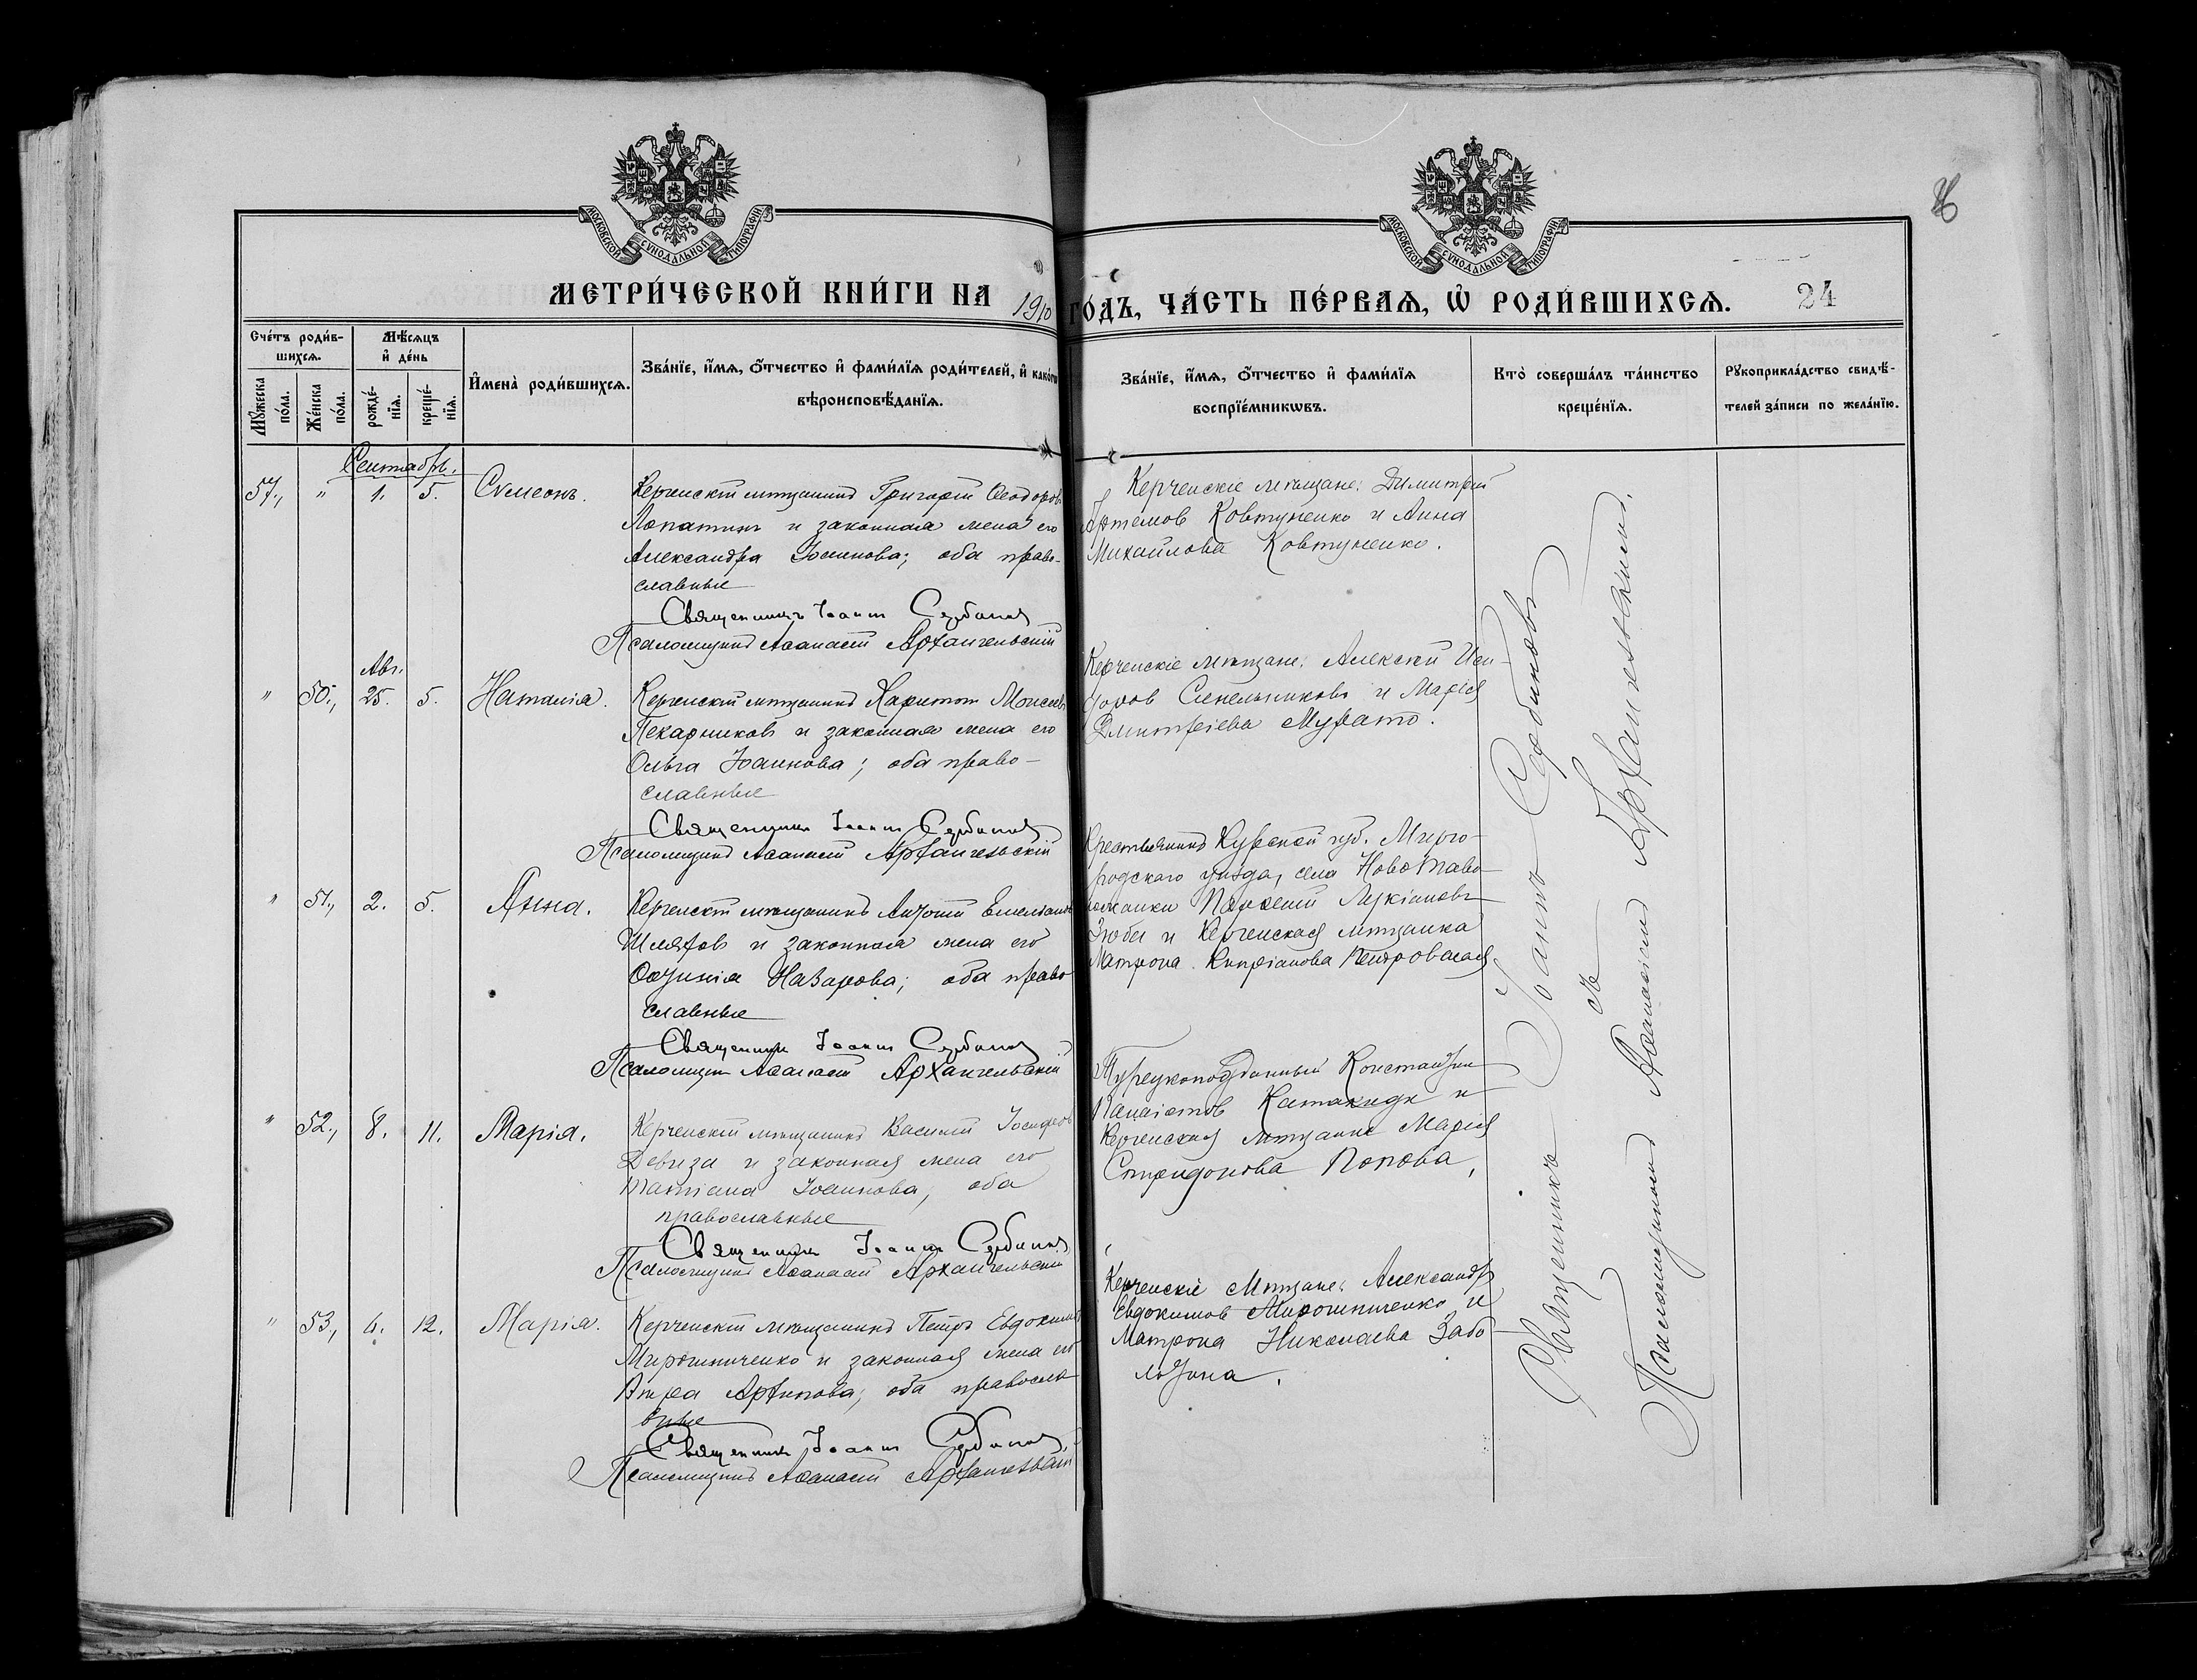 МОСКОВСКОЙ СУНОДАЛЬНОЙ ТИПОГРАФІИ
МОСКОВСКОЙ СУНОДАЛЬНОЙ ТИПОГРАФІИ
МЕТРИ́ЧЕСКОЙ КНИ́ГИ НА 1910 ГО́ДЪ, ЧА́СТЬ ПЕ́РВАЯ, Ѡ҆ РОДИ́ВШИХСЯ. 24
Сче́тъ роди́в-
шихся.
Мѣ́сяцъ
и҆ де́нь
Мꙋ́жеска
по́ла.
Же́нска
по́ла.
рожде́-
нїя.
креще́-
нїя.
И҆мена̀ роди́вшихся.
Зва́нїе, и҆́мя, ѻ҆́тчество и҆ фами́лїя роди́телей, и҆ како́гѡ
вѣроисповѣ́данїя.
Зва́нїе, и҆́мя, ѻ҆́тчество и҆ фами́лїя
воспрїе́мникѡвъ.
Кто̀ соверша́лъ та́инство
креще́нїя.
Рꙋкоприкла́дство свидѣ́-
телей за́писи по жела́нїю.
Сентябрь.
57., " 1. 5. Сѵмеонъ.
Керченскій мѣщанинъ Григорій Ѳеодоровъ
Лопатинъ и законная жена его
Александра Іоаннова; оба право-
славные
Священникъ Іоаннъ Сербиновъ
Псаломщикъ Аѳанасій Архангельскій
Керченскіе мѣщане: Димитрій
Артемовъ Ковтуненко и Анна
Михайлова Ковтуненко.
Авг.
" 50., 25. 5. Наталія.
Керченскій мѣщанинъ Харитонъ Моисеевъ
Пекарниковъ и законная жена его
Ольга Іоаннова; оба право-
славные
Священникъ Іоаннъ Сербиновъ
Псаломщикъ Аѳанасій Архангельскій
Керченскіе мѣщане: Алексій Иси-
доровъ Синельниковъ и Марія
Дмитріева Мурато.
" 51., 2. 5. Анна.
Керченскій мѣщанинъ Антоній Емеліановъ
Шляховъ и законная жена его
Назарова; оба право
славные
Священникъ Іоаннъ Сербиновъ
Псаломщикъ Аѳанасій Архангельскій
Крестьянинъ Курской губ. Мирго-
родскаго уѣзда, села
Лукіановъ
Зюба и Керченская мѣщанка
Матрона Кипріанова
" 52., 8. 11. Марія.
Керченскій мѣщанинъ Василій Іосифовъ
Девиза и законная жена его
Татіана Іоаннова; оба
православные
Священникъ Іоаннъ Сербиновъ
Псаломщикъ Аѳанасій Архангельскій
Турецкоподданный Константинъ
Панаіотовъ и
Керченская мѣщанка Марія
Спиридонова Попова.
" 53., 6. 12. Марія.
Керченскій мѣщанинъ Петръ Евдокимовъ
Мирошниченко и законная жена его
Вѣра Архипова; оба правосла
вные
Священникъ Іоаннъ Сербиновъ
Псаломщикъ Аѳанасій Архангельскій
Керченскіе Мѣщане: Александръ
Евдокимовъ Мирошниченко и
Матрона Николаева
Священникъ Іоаннъ Сербиновъ
съ
Псаломщикомъ Аѳанасіемъ Архангельскимъ.